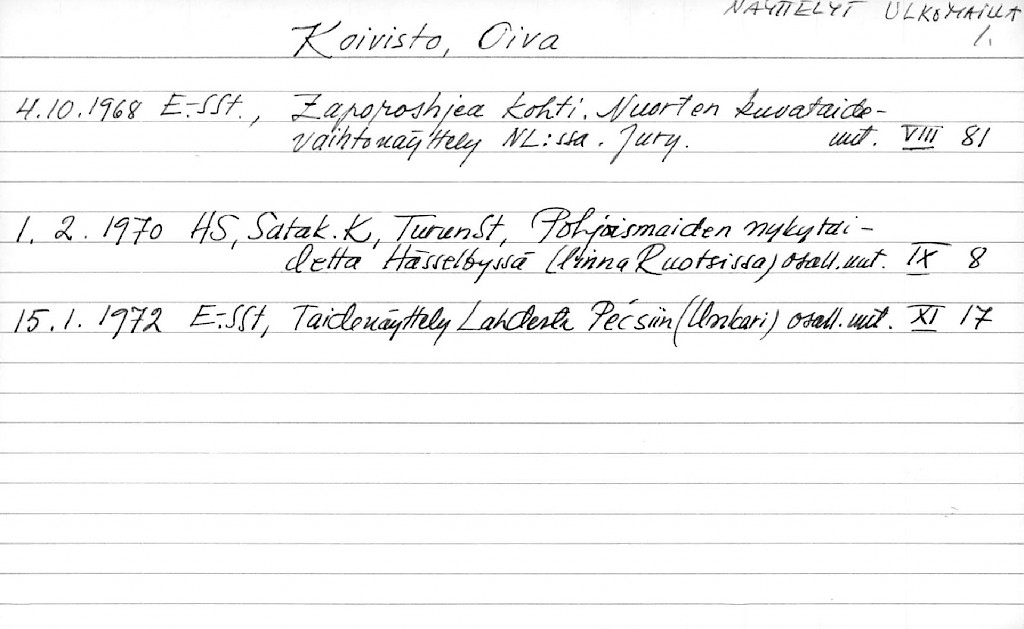 NÄYTTELYT ULKOMAILLA
1.
Koivisto, Oiva
4.10.1968 E-SSt., Zaporoshjea kohti. Nuorten kuvataide-
vaihtonäyttely NL:ssa. Jury. mit. VIII 81
1. 2. 1970 HS, Satak.K, TurunSt, Pohjoismaiden nykytai-
detta Hässelbyssä (linna Ruotsissa) osall. mit. IX 8
15.1. 1972 E-SSt, Taidenäyttely Lahdesta Pécsiin (Unkari) osall. mit. XI 17